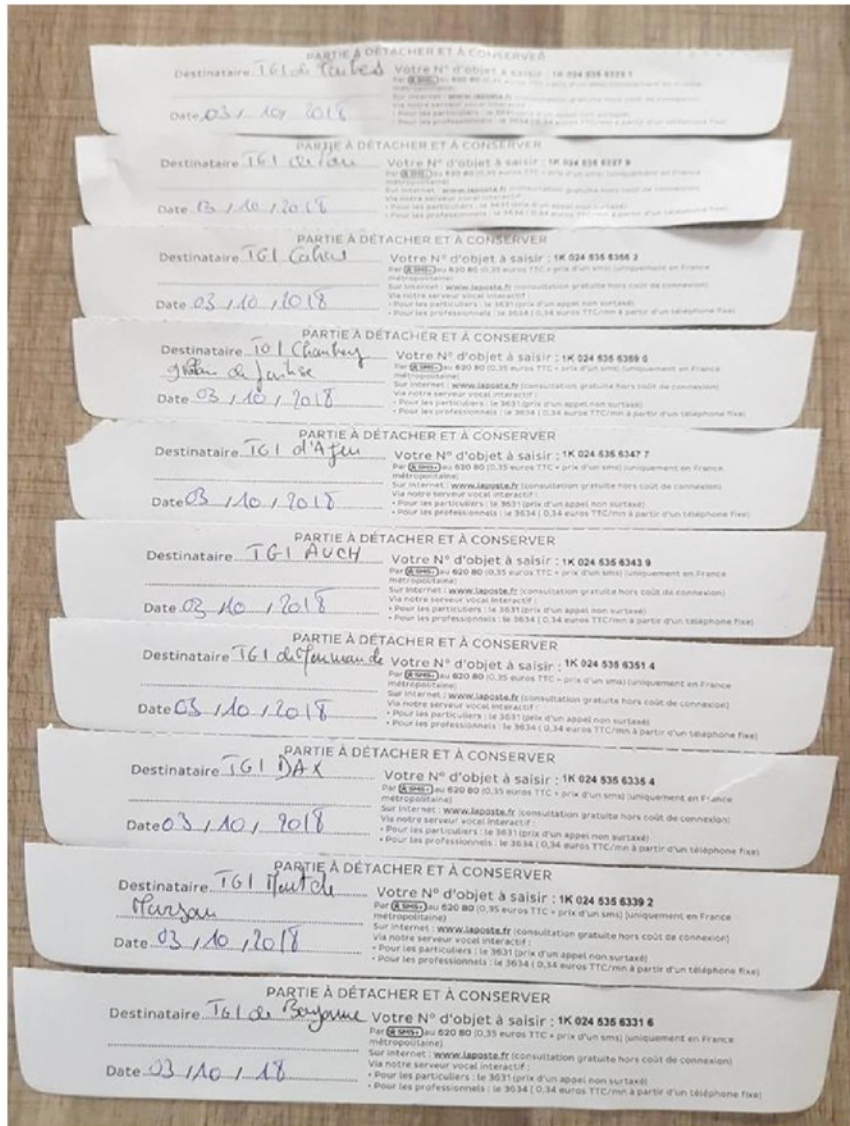 PARTIE À DÉTACHER ET À CONSERVER
Destinataire TGI de Tarbes Votre N° d'objet à saisir : 1K 024 535 6323 1
Par SMS+ au 620 80
métropolitaine)
Sur internet : www.laposte.fr (consultation gratuite hors coût de connexion)
Via notre serveur vocal interactif
Date 03 / 10 / 2018
• Pour les professionnels : le 3634 ( 0,34 euros TTC/mn à partir d'un téléphone fixe)
PARTIE À DÉTACHER ET À CONSERVER
Destinataire TGI de Pau Votre N° d'objet à saisir : 1K 024 535 6327 9
Par SMS+ au 620 80 (0,35 euros TTC + prix d'un sms) (uniquement en France
métropolitaine)
Sur internet : www.laposte.fr (consultation gratuite hors coût de connexion)
Via notre serveur vocal interactif
• Pour les particuliers : le 3631 (prix d'un appel non surtaxé)
Date 03 / 10 / 2018
• Pour les professionnels : le 3634 ( 0,34 euros TTC/mn à partir d'un téléphone fixe)
PARTIE À DÉTACHER ET À CONSERVER
Destinataire TGI Cahors Votre N° d'objet à saisir : 1K 024 535 6355 2
Par SMS+ au 620 80 (0,35 euros TTC + prix d'un sms) (uniquement en France
métropolitaine)
Sur internet : www.laposte.fr (consultation gratuite hors coût de connexion)
Via notre serveur vocal interactif
• Pour les particuliers : le 3631 (prix d'un appel non surtaxé)
Date 03 / 10 / 2018
• Pour les professionnels : le 3634 ( 0,34 euros TTC/mn à partir d'un téléphone fixe)
PARTIE À DÉTACHER ET À CONSERVER
Destinataire TGI Chambery Votre N° d'objet à saisir : 1K 024 535 6359 0
de justice
Par SMS+ au 620 80 (0,35 euros TTC + prix d'un sms) (uniquement en France
métropolitaine)
Sur internet : www.laposte.fr (consultation gratuite hors coût de connexion)
Via notre serveur vocal interactif :
Date 03 / 10 / 2018
• Pour les particuliers : le 3631 (prix d'un appel non surtaxé)
• Pour les professionnels : le 3634 ( 0,34 euros TTC/mn à partir d'un téléphone fixe)
PARTIE À DÉTACHER ET À CONSERVER
Destinataire TGI d'Agen Votre N° d'objet à saisir : 1K 024 535 6347 7
Par SMS+ au 620 80 (0,35 euros TTC + prix d'un sms) (uniquement en France
métropolitaine)
Sur internet : www.laposte.fr (consultation gratuite hors coût de connexion)
Via notre serveur vocal interactif :
Date 03 / 10 / 2018
• Pour les particuliers : le 3631 (prix d'un appel non surtaxé)
• Pour les professionnels : le 3634 ( 0,34 euros TTC/mn à partir d'un téléphone fixe)
PARTIE À DÉTACHER ET À CONSERVER
Destinataire TGI AUCH Votre N° d'objet à saisir : 1K 024 535 6343 9
Par SMS+ au 620 80 (0,35 euros TTC + prix d'un sms) (uniquement en France
métropolitaine)
Sur internet : www.laposte.fr (consultation gratuite hors coût de connexion)
Via notre serveur vocal interactif :
Date 03 / 10 / 2018
• Pour les particuliers : le 3631 (prix d'un appel non surtaxé)
• Pour les professionnels : le 3634 ( 0,34 euros TTC/mn à partir d'un téléphone fixe)
PARTIE À DÉTACHER ET À CONSERVER
Destinataire TGI de Marmande Votre N° d'objet à saisir : 1K 024 535 6351 4
Par SMS+ au 620 80 (0,35 euros TTC + prix d'un sms) (uniquement en France
métropolitaine)
Sur internet : www.laposte.fr (consultation gratuite hors coût de connexion)
Via notre serveur vocal interactif :
Date 03 / 10 / 2018
• Pour les particuliers : le 3631 (prix d'un appel non surtaxé)
• Pour les professionnels : le 3634 ( 0,34 euros TTC/mn à partir d'un téléphone fixe)
PARTIE À DÉTACHER ET À CONSERVER
Destinataire TGI DAX Votre N° d'objet à saisir : 1K 024 535 6335 4
Par SMS+ au 620 80 (0,35 euros TTC + prix d'un sms) (uniquement en France
métropolitaine)
Sur internet : www.laposte.fr (consultation gratuite hors coût de connexion)
Via notre serveur vocal interactif :
Date 03 / 10 / 2018
• Pour les particuliers : le 3631 (prix d'un appel non surtaxé)
• Pour les professionnels : le 3634 ( 0,34 euros TTC/mn à partir d'un téléphone fixe)
PARTIE À DÉTACHER ET À CONSERVER
Destinataire TGI Mont de Votre N° d'objet à saisir : 1K 024 535 6339 2
Marsan
Par SMS+ au 620 80 (0,35 euros TTC + prix d'un sms) (uniquement en France
métropolitaine)
Sur internet : www.laposte.fr (consultation gratuite hors coût de connexion)
Via notre serveur vocal interactif :
Date 03 / 10 / 2018
• Pour les particuliers : le 3631 (prix d'un appel non surtaxé)
• Pour les professionnels : le 3634 ( 0,34 euros TTC/mn à partir d'un téléphone fixe)
PARTIE À DÉTACHER ET À CONSERVER
Destinataire TGI de Bayonne Votre N° d'objet à saisir : 1K 024 535 6331 6
Par SMS+ au 620 80 (0,35 euros TTC + prix d'un sms) (uniquement en France
métropolitaine)
Sur internet : www.laposte.fr (consultation gratuite hors coût de connexion)
Via notre serveur vocal interactif :
Date 03 / 10 / 18
• Pour les particuliers : le 3631 (prix d'un appel non surtaxé)
• Pour les professionnels : le 3634 ( 0,34 euros TTC/mn à partir d'un téléphone fixe)